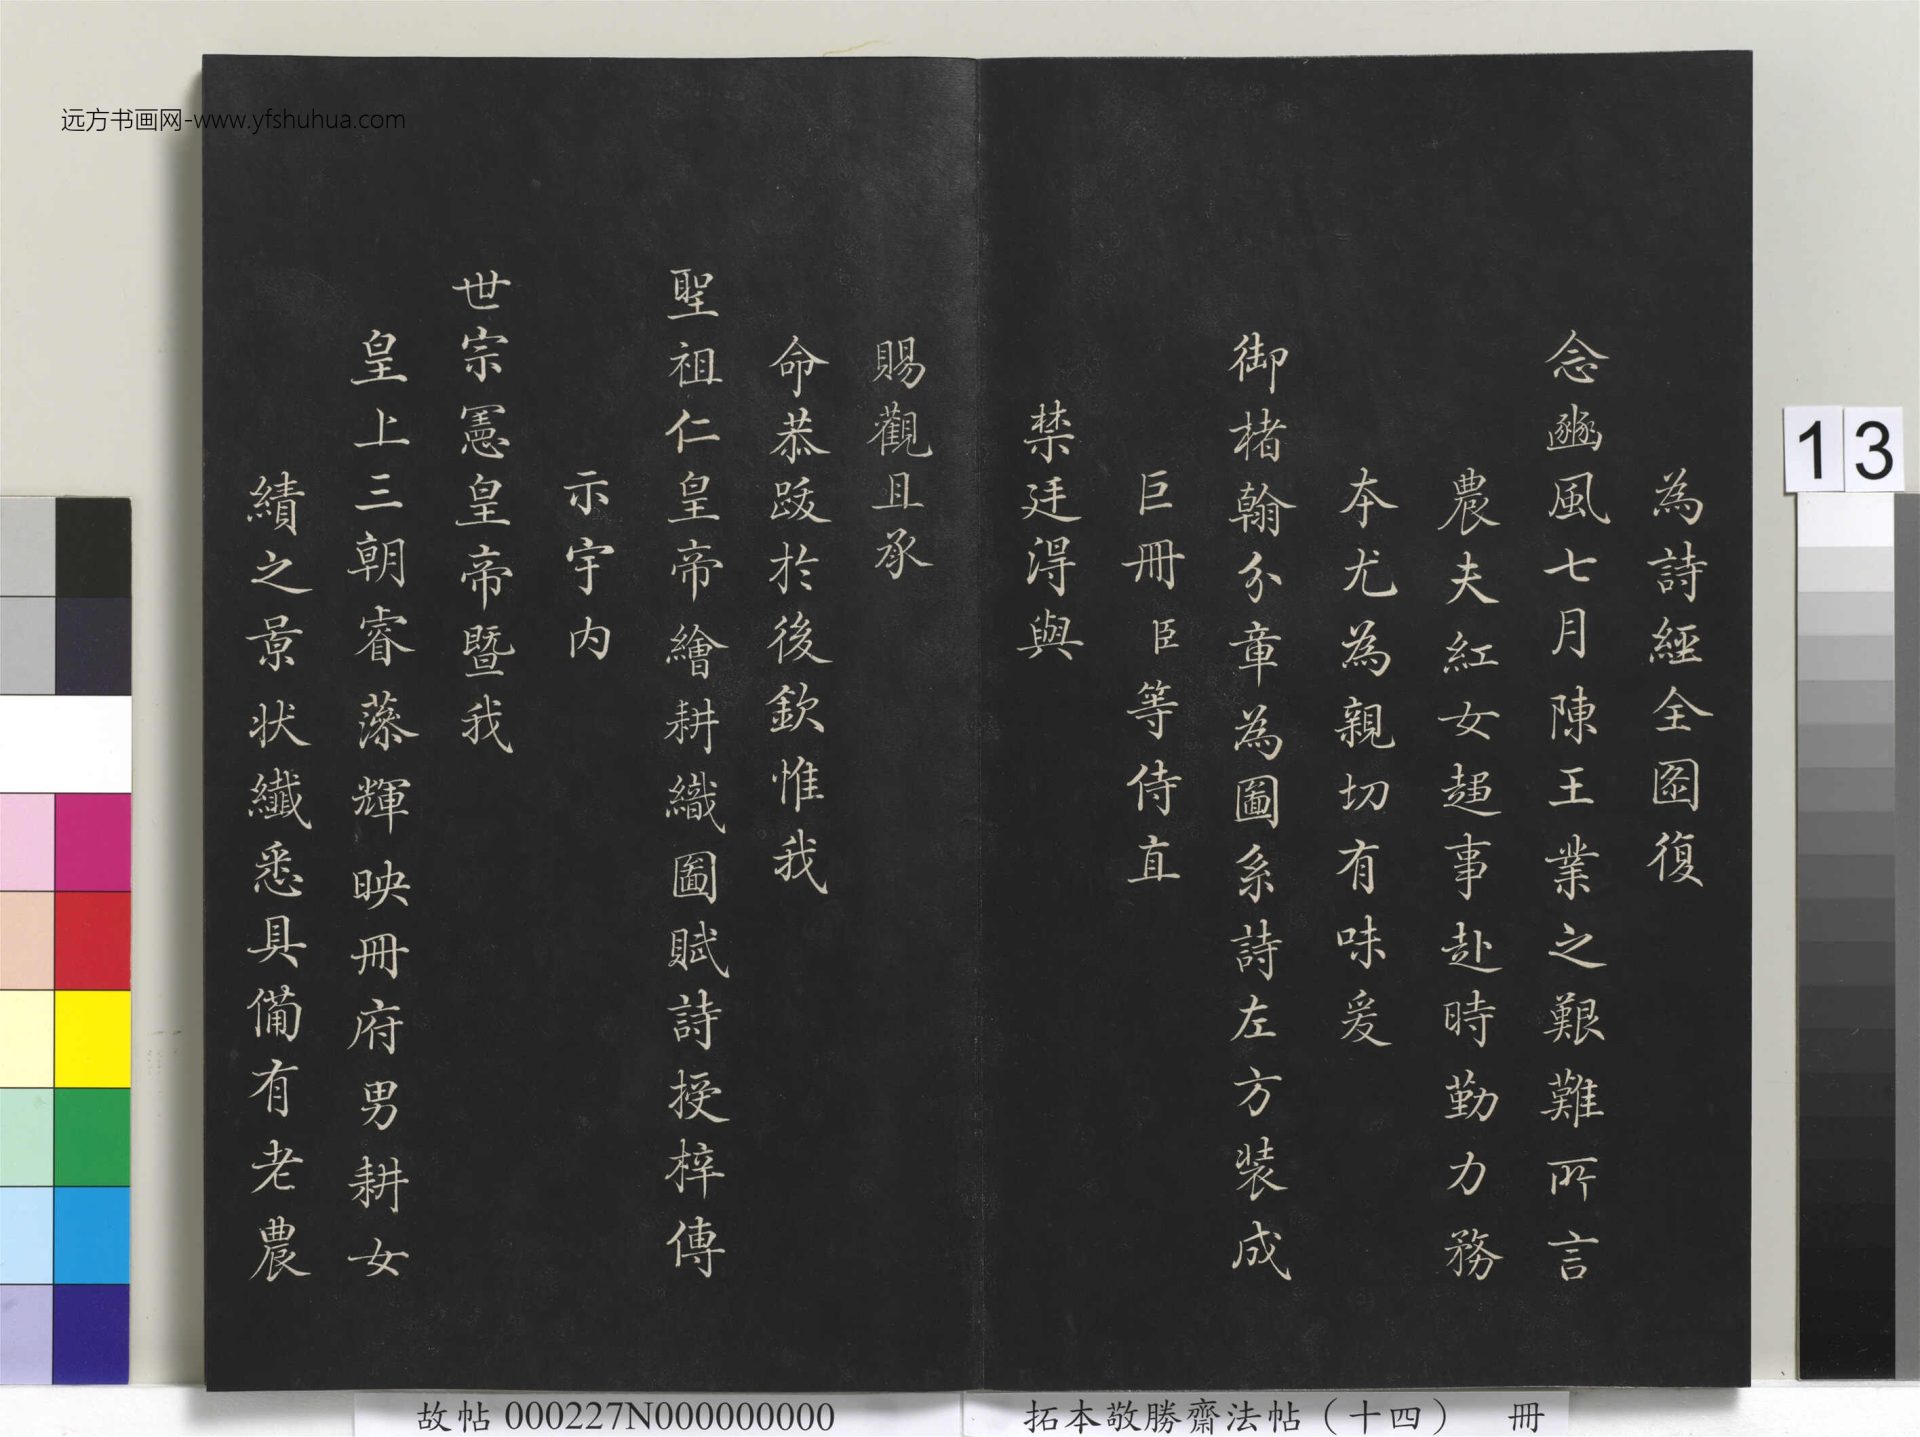 远方书画网-www.yfshuhua.com
為詩經全圖復
念豳風七月陳王業之艱難所言
農夫紅女趨事赴時勤力務
本尤為親切有味爰
御楮翰分章為圖系詩左方裝成
巨冊臣等侍直
禁廷得與
賜觀且承
命恭跋於後欽惟我
聖祖仁皇帝繪耕織圖賦詩授梓傳
示宇内
世宗憲皇帝暨我
皇上三朝睿藻輝映冊府男耕女
績之景状纎悉具備有老農
13
故帖 000227N000000000
拓本敬勝齋法帖（十四） 冊